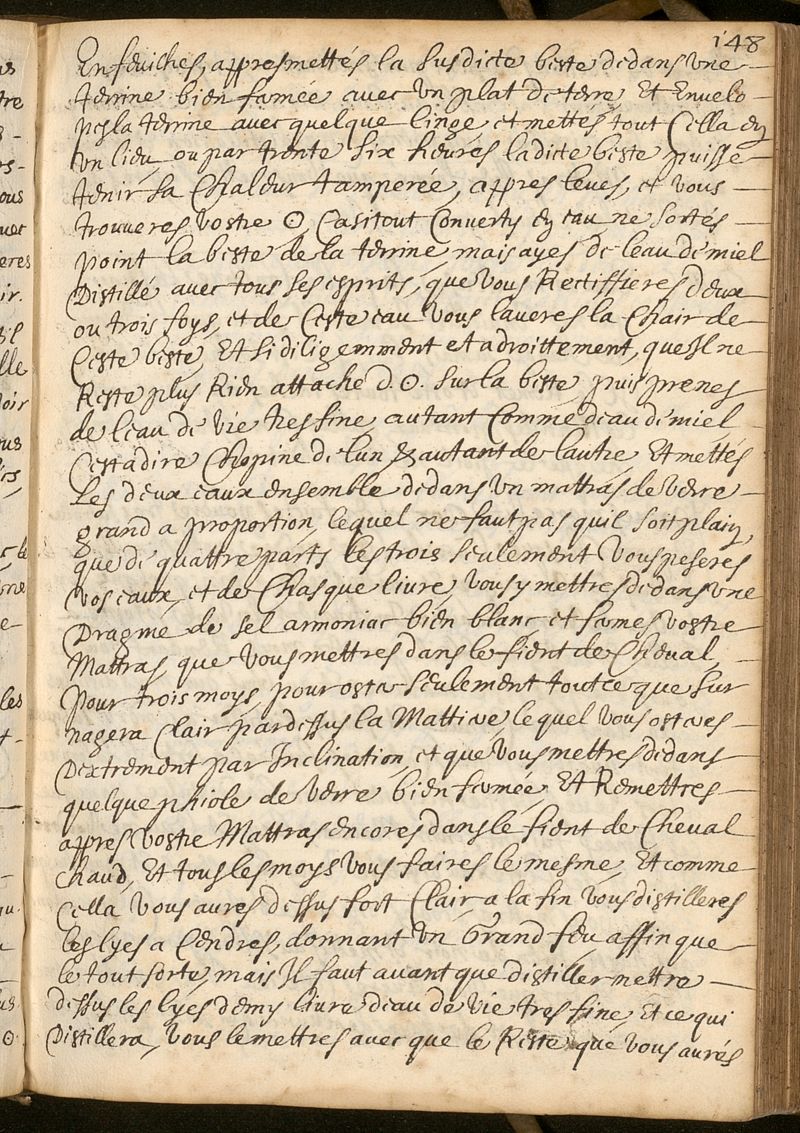 148
Enfeuiches, appres mettés la susdicte beste dedans une
terrine bien fermée avec un plat de terre, Et Envelo
pes la terrine avec quelque linge, et mettés tout Cella en
un lieu ou par trente six heures ladicte beste puisse
tenir sa Chaleur tamperée, appres leues, et vous
trouueres vostre ☉ Casi tout Converty en eau, ne sortés
point la beste de la terrine, mais ayes de leau de miel
Distillé avec tous ses esprits, que vous Rectiffieres deux
ou trois foys, et de Ceste eau vous laveres la Chair de
Ceste beste, Et si diligemment et adroittement, que Il ne
Reste plus Rien attache d. ☉. sur la beste, puis prenes
de leau de vie tres fine, autant Comme deau de miel
Cest a dire Chopine de lun & autant de lautre, Et mettés
Les deux eaux ensemble dedans un mattras de verre
grand a proportion, lequel ne faut pas quil soit plain,
que de quattre parts les trois seulement vous peseres
vos eaux, et de Chasque livre, vous y mettres dedans une
Dragme de sel armoniac bien blanc et fermes vostre
Mattras, que vous mettres dans le fient de Cheval,
pour trois moys, pour oster seulement tout ce que sur
nagera Clair par dessus la Mattiere, lequel vous osteres
Dextrement par Inclination, et que vous mettres dedans
quelque phiole de verre bien fermée, Et Remettres
appres vostre Mattras encores dans le fient de Cheval
chaud, Et tous les moys vous faires le mesme, Et comme
Cella vous aures dessus fort Clair, a la fin vous distilleres
les lyes a Cendres, donnant un Grand feu affin que
le tout sorte, mais Il faut auant que distiller mettre
dessus les lyes demy livre deau de vie tres fine, Et ce qui
Distillera, vous le mettres avec que le Reste que vous aurés